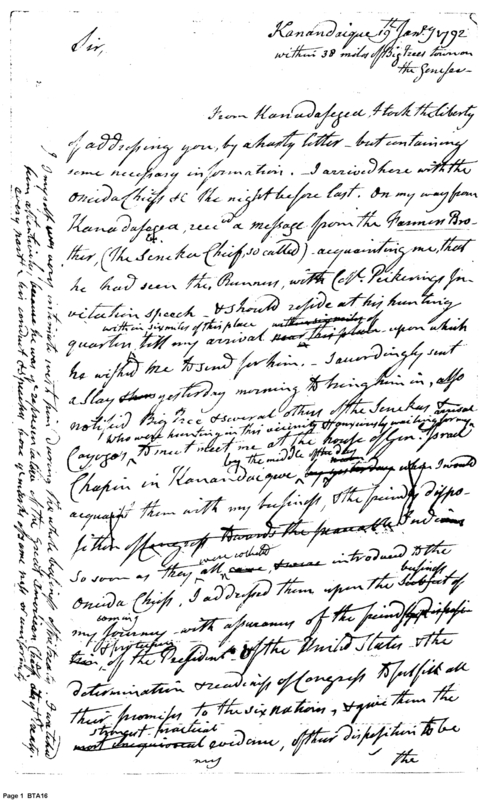 Kanandaique 19th Jany. 1792
within 38 miles of Big Trees town on
the Genesee —
Sir,
From Kanadasega, I took the liberty
of addressing you, by a hasty letter — but containing
some necessary information. — I arrived here with the
Oneida Chiefs &c the night before last. On my way from
Kanadasega, recd a message from the Farmers Bro-
ther, (the Seneka Chief, so called) acquainting me, that
he had seen the Runners, with Col. Pickerings In-
vitation speech — & should reside at his hunting
within six miles of this place
quarters till my arrival near this place — upon which
he wished me to send for him. — I accordingly sent
a slay yesterday morning to bring him in, also
notified Big Tree & several others of the Senekas &
who were hunting in this vicinity & anxiously waiting for my arrival
Cayogas, to meet me at the house of Gen. Israel
by the middle of the day
Chapin in Kanandaique, when I would
acquaint them with my business, & the friendly dispo-
sition of Congress towards the Indians
were collected
so soon as they all came, introduced to the
business
Oneida Chiefs, I addressed them upon the subject of
coming
my journey with assurances of the friendly disposi-
& protection
tion, of the President & of the United States & the
determination & readiness of Congress to fulfill all
their promises to the six nations, & give them the
strongest practical
most unequivocal evidence, of their disposition to be
my
the
I myself was very intimate with him during the whole business of the treaty. I watched
him attentively because he was representative of the great American Chief
every part of his conduct & speeches bore marks of some rule & uniformity
Page 1 BTA16